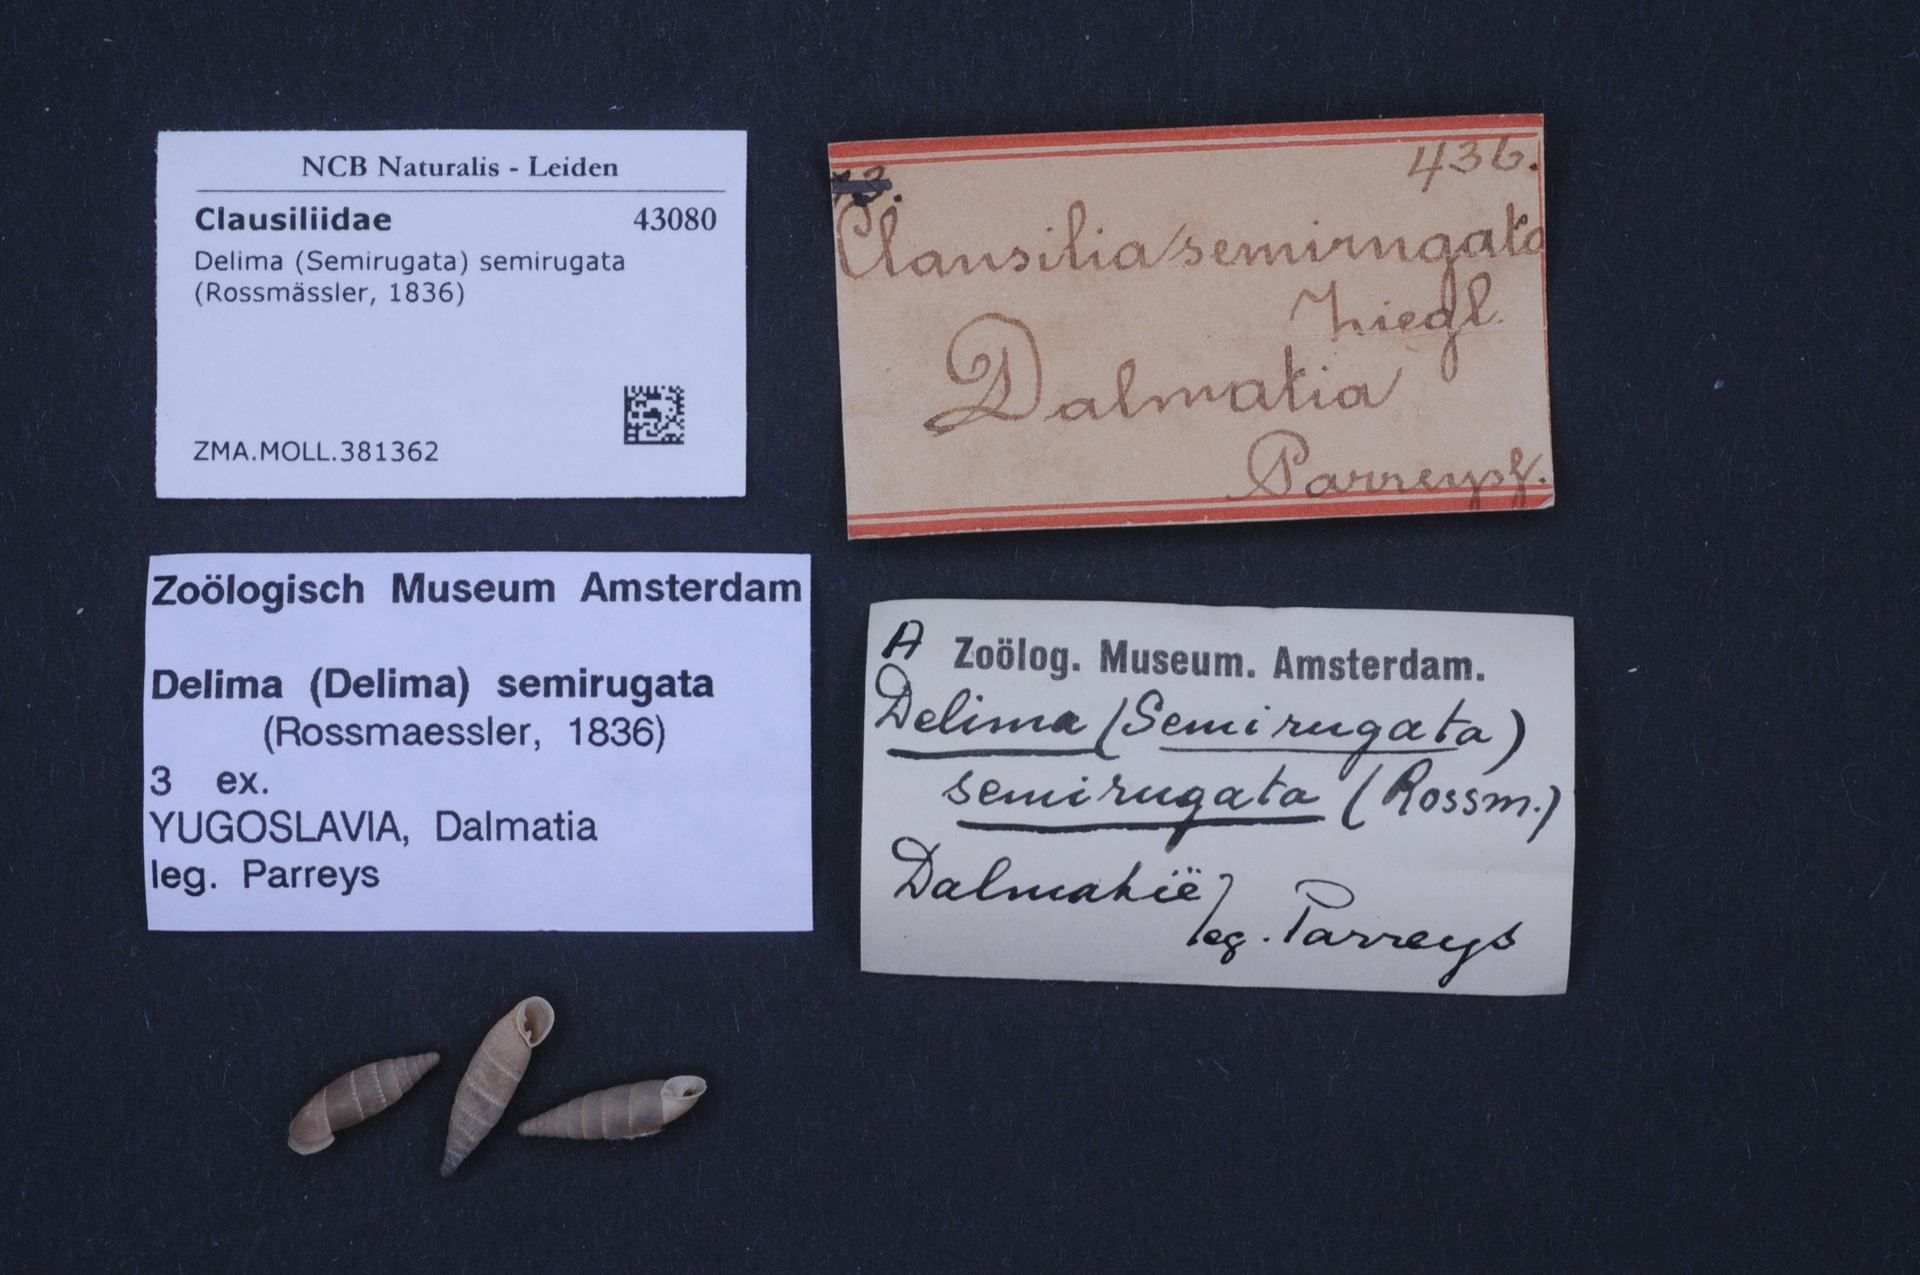 NCB Naturalis - Leiden
Clausiliidae 43080
Delima (Semirugata) semirugata
(Rossmässler, 1836)
ZMA.MOLL.381362
436.
Clausilia semirugata
Ziegl.
Dalmatia
Parreyss.
Zoölogisch Museum Amsterdam
Delima (Delima) semirugata
(Rossmaessler, 1836)
3 ex.
YUGOSLAVIA, Dalmatia
leg. Parreys
A Zoölog. Museum. Amsterdam.
Delima (Semirugata)
semirugata (Rossm.)
Dalmatië
leg. Parreys